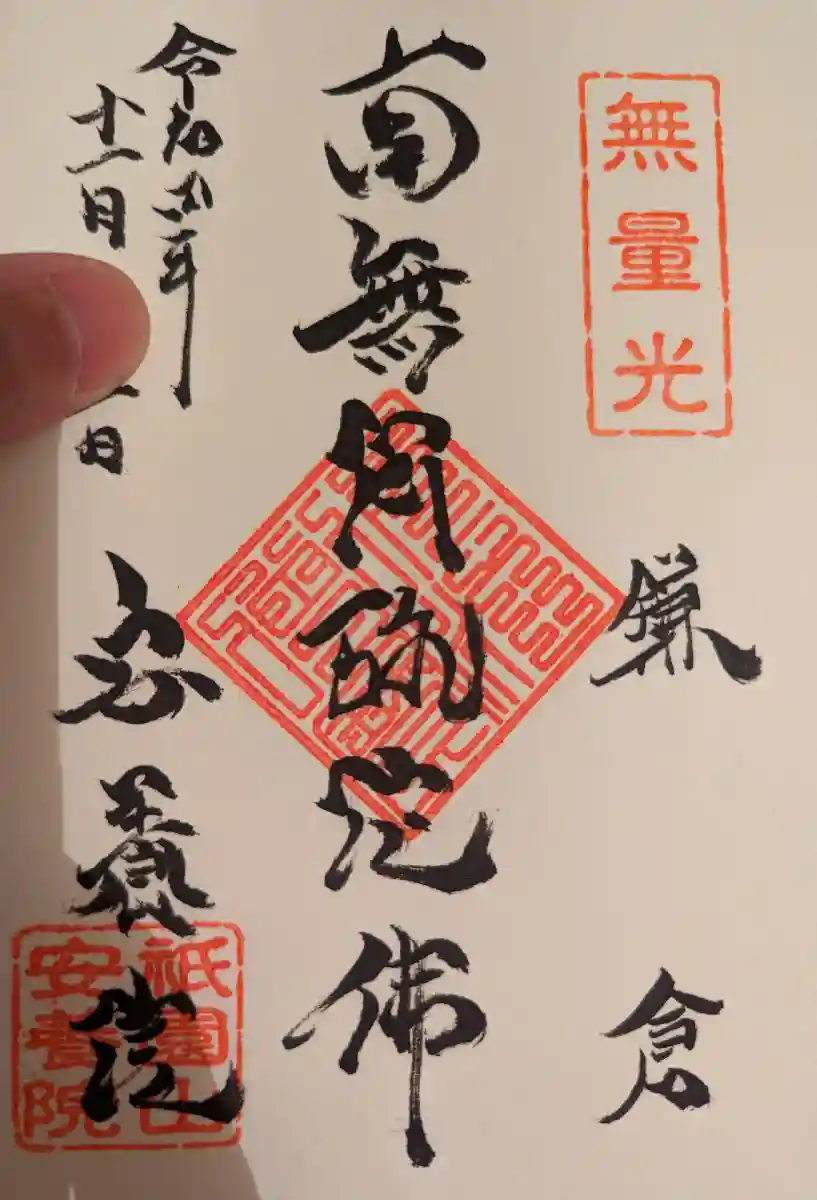 無量光
鎌倉
南無阿弥陀佛
令和年
十一月 日
安養院
祇園山
安養院